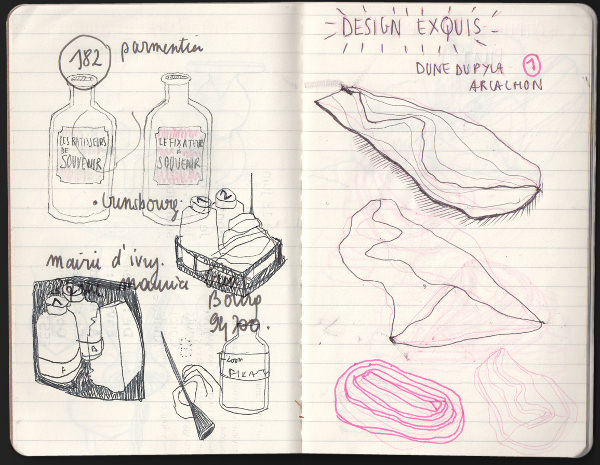 182 parmentier
LES BATISSEURS
DE
SOUVENIR
LE FIXATEUR
DE
SOUVENIR
• Gunsbourg
1 2
mairie d'ivry.
1 2
A
B
94200.
FIXA
DESIGN EXQUIS
DUNE DU PYLA 1
ARCACHON